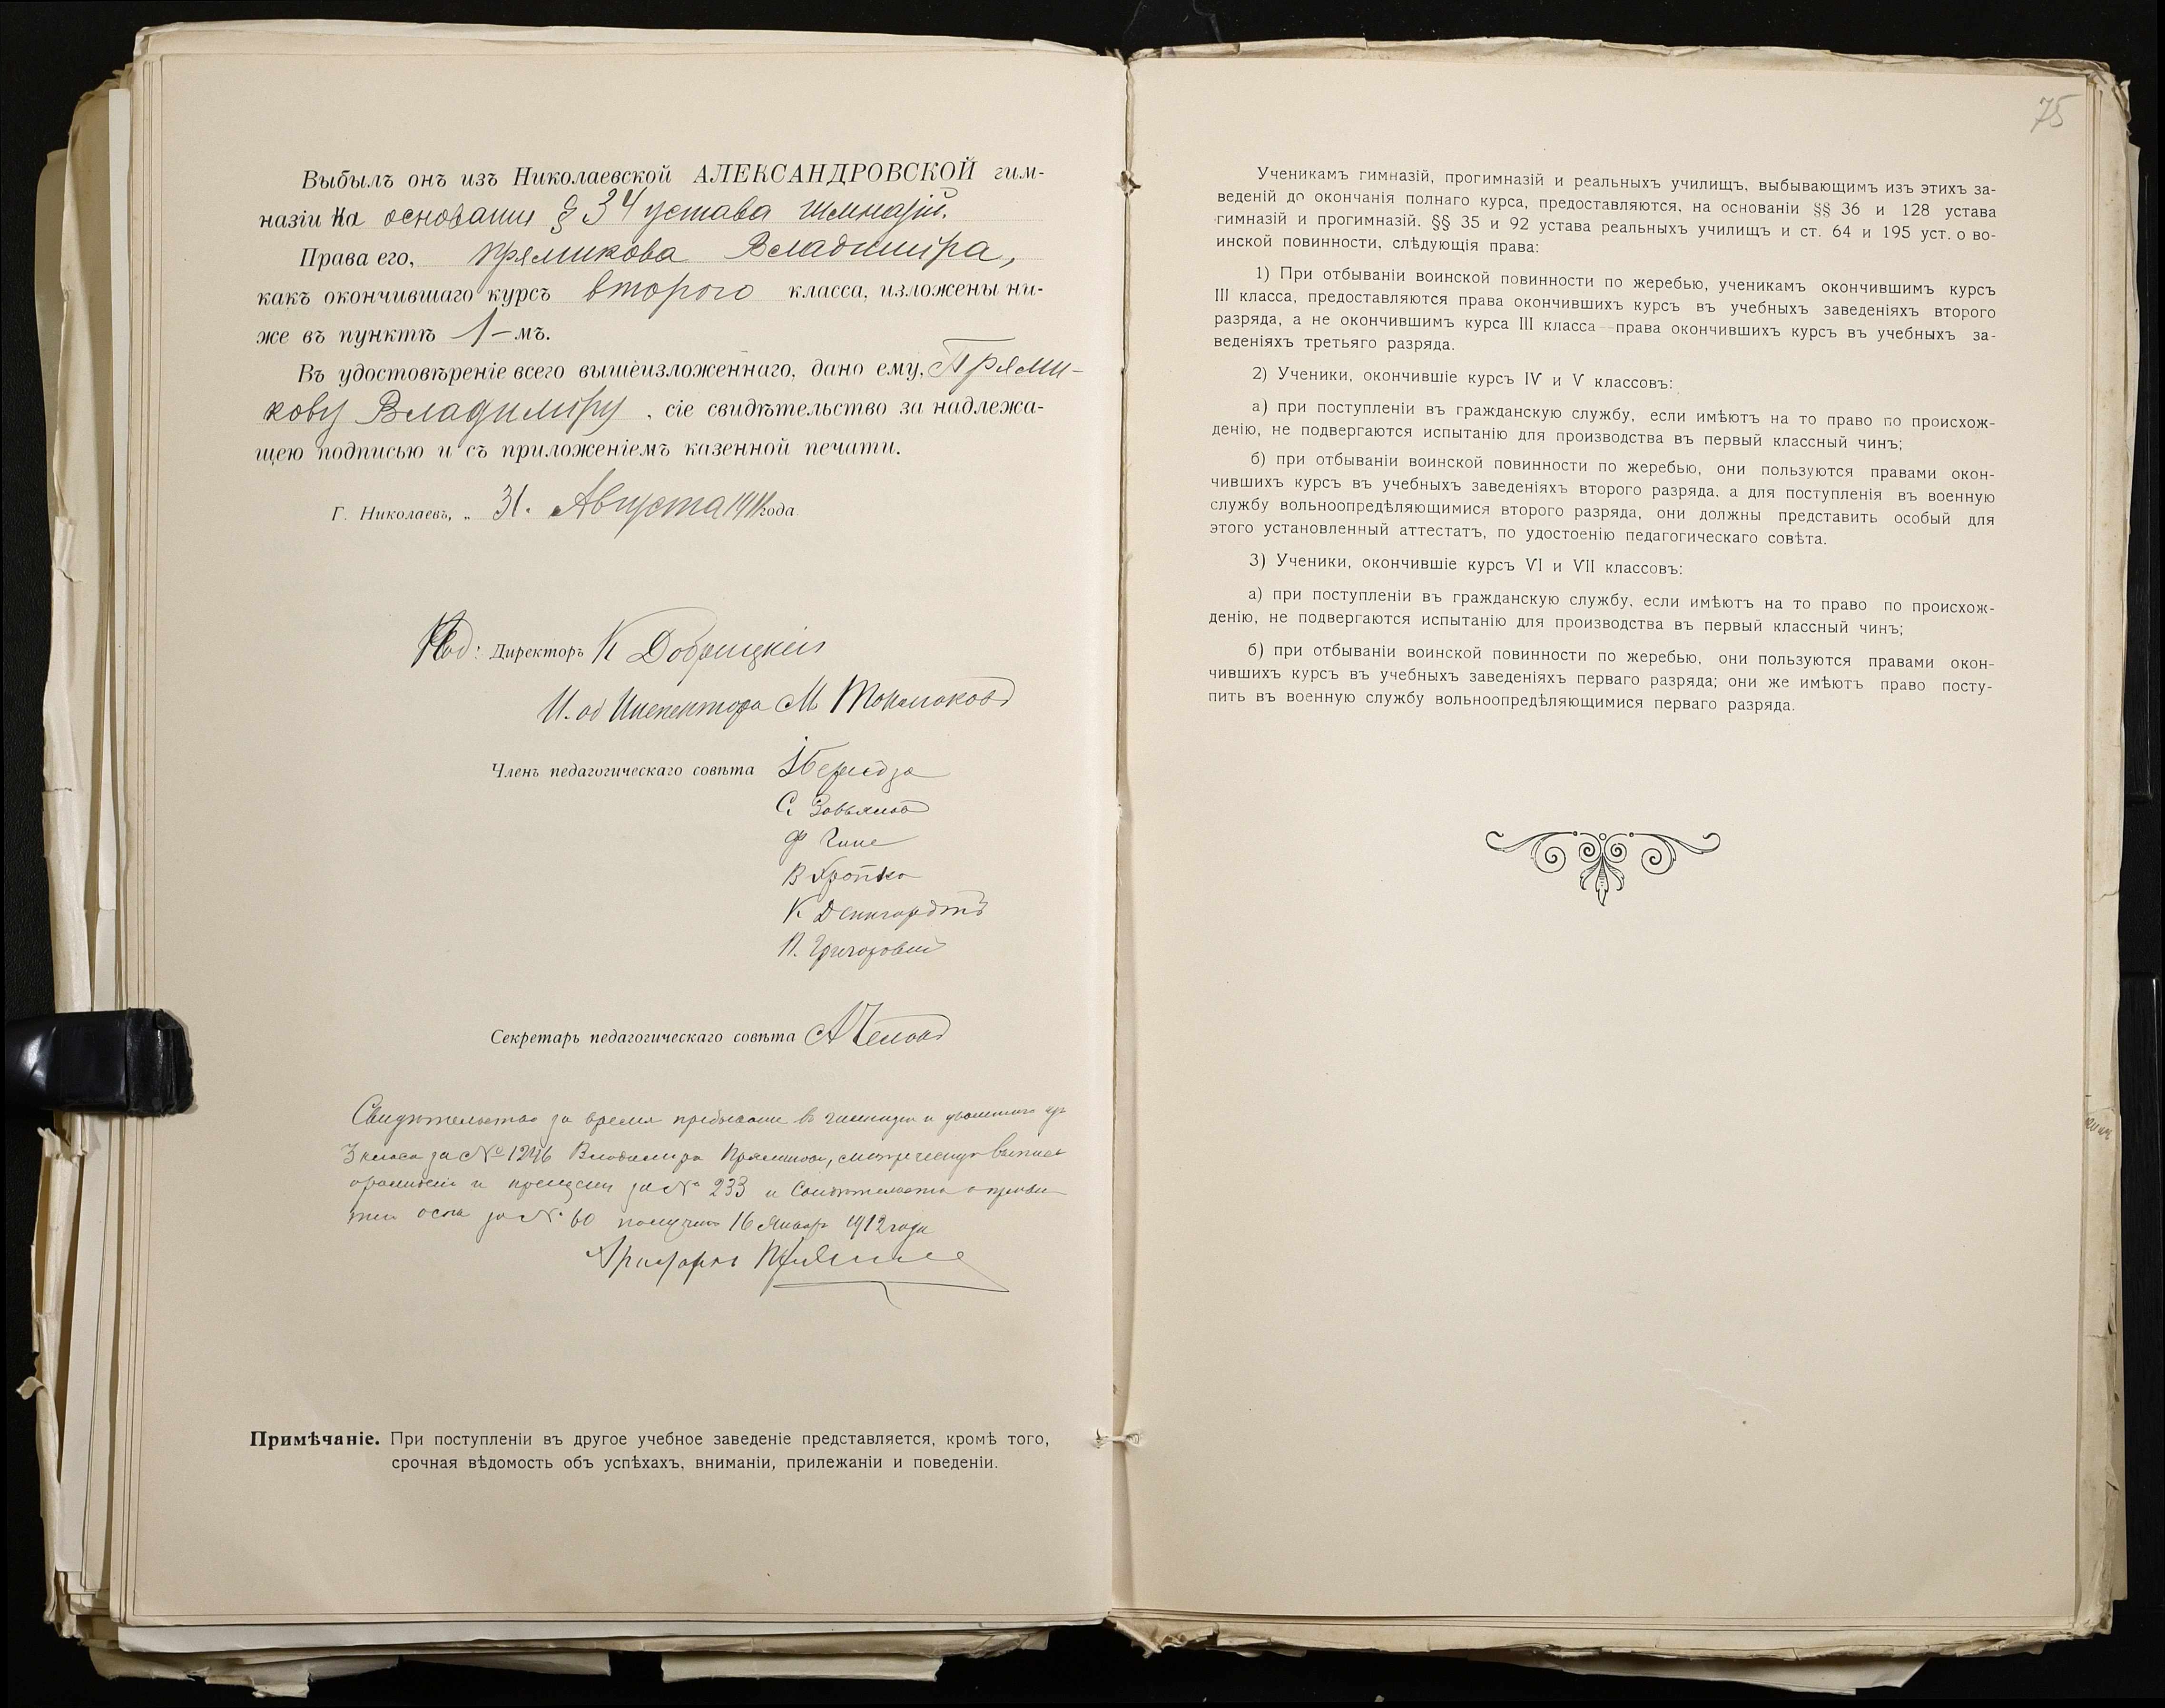 Выбылъ онъ изъ Николаевской АЛЕКСАНДРОВСКОЙ гим-
назіи на основаніи § 34 устава гимназій.
Права его, Прямикова Владиміра,
какъ окончившаго курсъ второго класса, изложены ни-
же въ пунктѣ 1-мъ.
Въ удостовѣреніе всего вышеизложеннаго, дано ему, Прями-
кову Владиміру, сіе свидѣтельство за надлежа-
щею подписью и съ приложеніемъ казенной печати.
Г. Николаевъ, „ 31. Августа 1911 года
Директоръ К Добрицкій
И. об Инспектора М
Членъ педагогическаго совѣта
С.
Ф
В
К
П. Григоровий
Секретарь педагогическаго совѣта А
Свидѣтельство за время пребыванія в гимназіи и из
3 класса за № 1246 Владимира Прямикова,
и за № 233 и Свидѣтельства о
оспа за № 60 получил 16 Января 1912 года
Примѣчаніе. При поступленіи въ другое учебное заведеніе представляется, кромѣ того,
срочная вѣдомость объ успѣхахъ, вниманіи, прилежаніи и поведеніи.
75
Ученикамъ гимназій, прогимназій и реальныхъ училищъ, выбывающимъ изъ этихъ за-
веденій до окончанія полнаго курса, предоставляются, на основаніи §§ 36 и 128 устава
гимназій и прогимназій, §§ 35 и 92 устава реальныхъ училищъ и ст. 64 и 195 уст. о во-
инской повинности, слѣдующія права:
1) При отбываніи воинской повинности по жеребью, ученикамъ окончившимъ курсъ
III класса, предоставляются права окончившихъ курсъ въ учебныхъ заведеніяхъ второго
разряда, а не окончившимъ курса III класса—права окончившихъ курсъ въ учебныхъ за-
веденіяхъ третьяго разряда.
2) Ученики, окончившіе курсъ IV и V классовъ:
а) при поступленіи въ гражданскую службу, если имѣютъ на то право по происхож-
денію, не подвергаются испытанію для производства въ первый классный чинъ;
б) при отбываніи воинской повинности по жеребью, они пользуются правами окон-
чившихъ курсъ въ учебныхъ заведеніяхъ второго разряда, а для поступленія въ военную
службу вольноопредѣляющимися второго разряда, они должны представить особый для
этого установленный аттестатъ, по удостоенію педагогическаго совѣта.
3) Ученики, окончившіе курсъ VI и VII классовъ:
а) при поступленіи въ гражданскую службу, если имѣютъ на то право по происхож-
денію, не подвергаются испытанію для производства въ первый классный чинъ;
б) при отбываніи воинской повинности по жеребью, они пользуются правами окон-
чившихъ курсъ въ учебныхъ заведеніяхъ перваго разряда; они же имѣютъ право посту-
пить въ военную службу вольноопредѣляющимися перваго разряда.